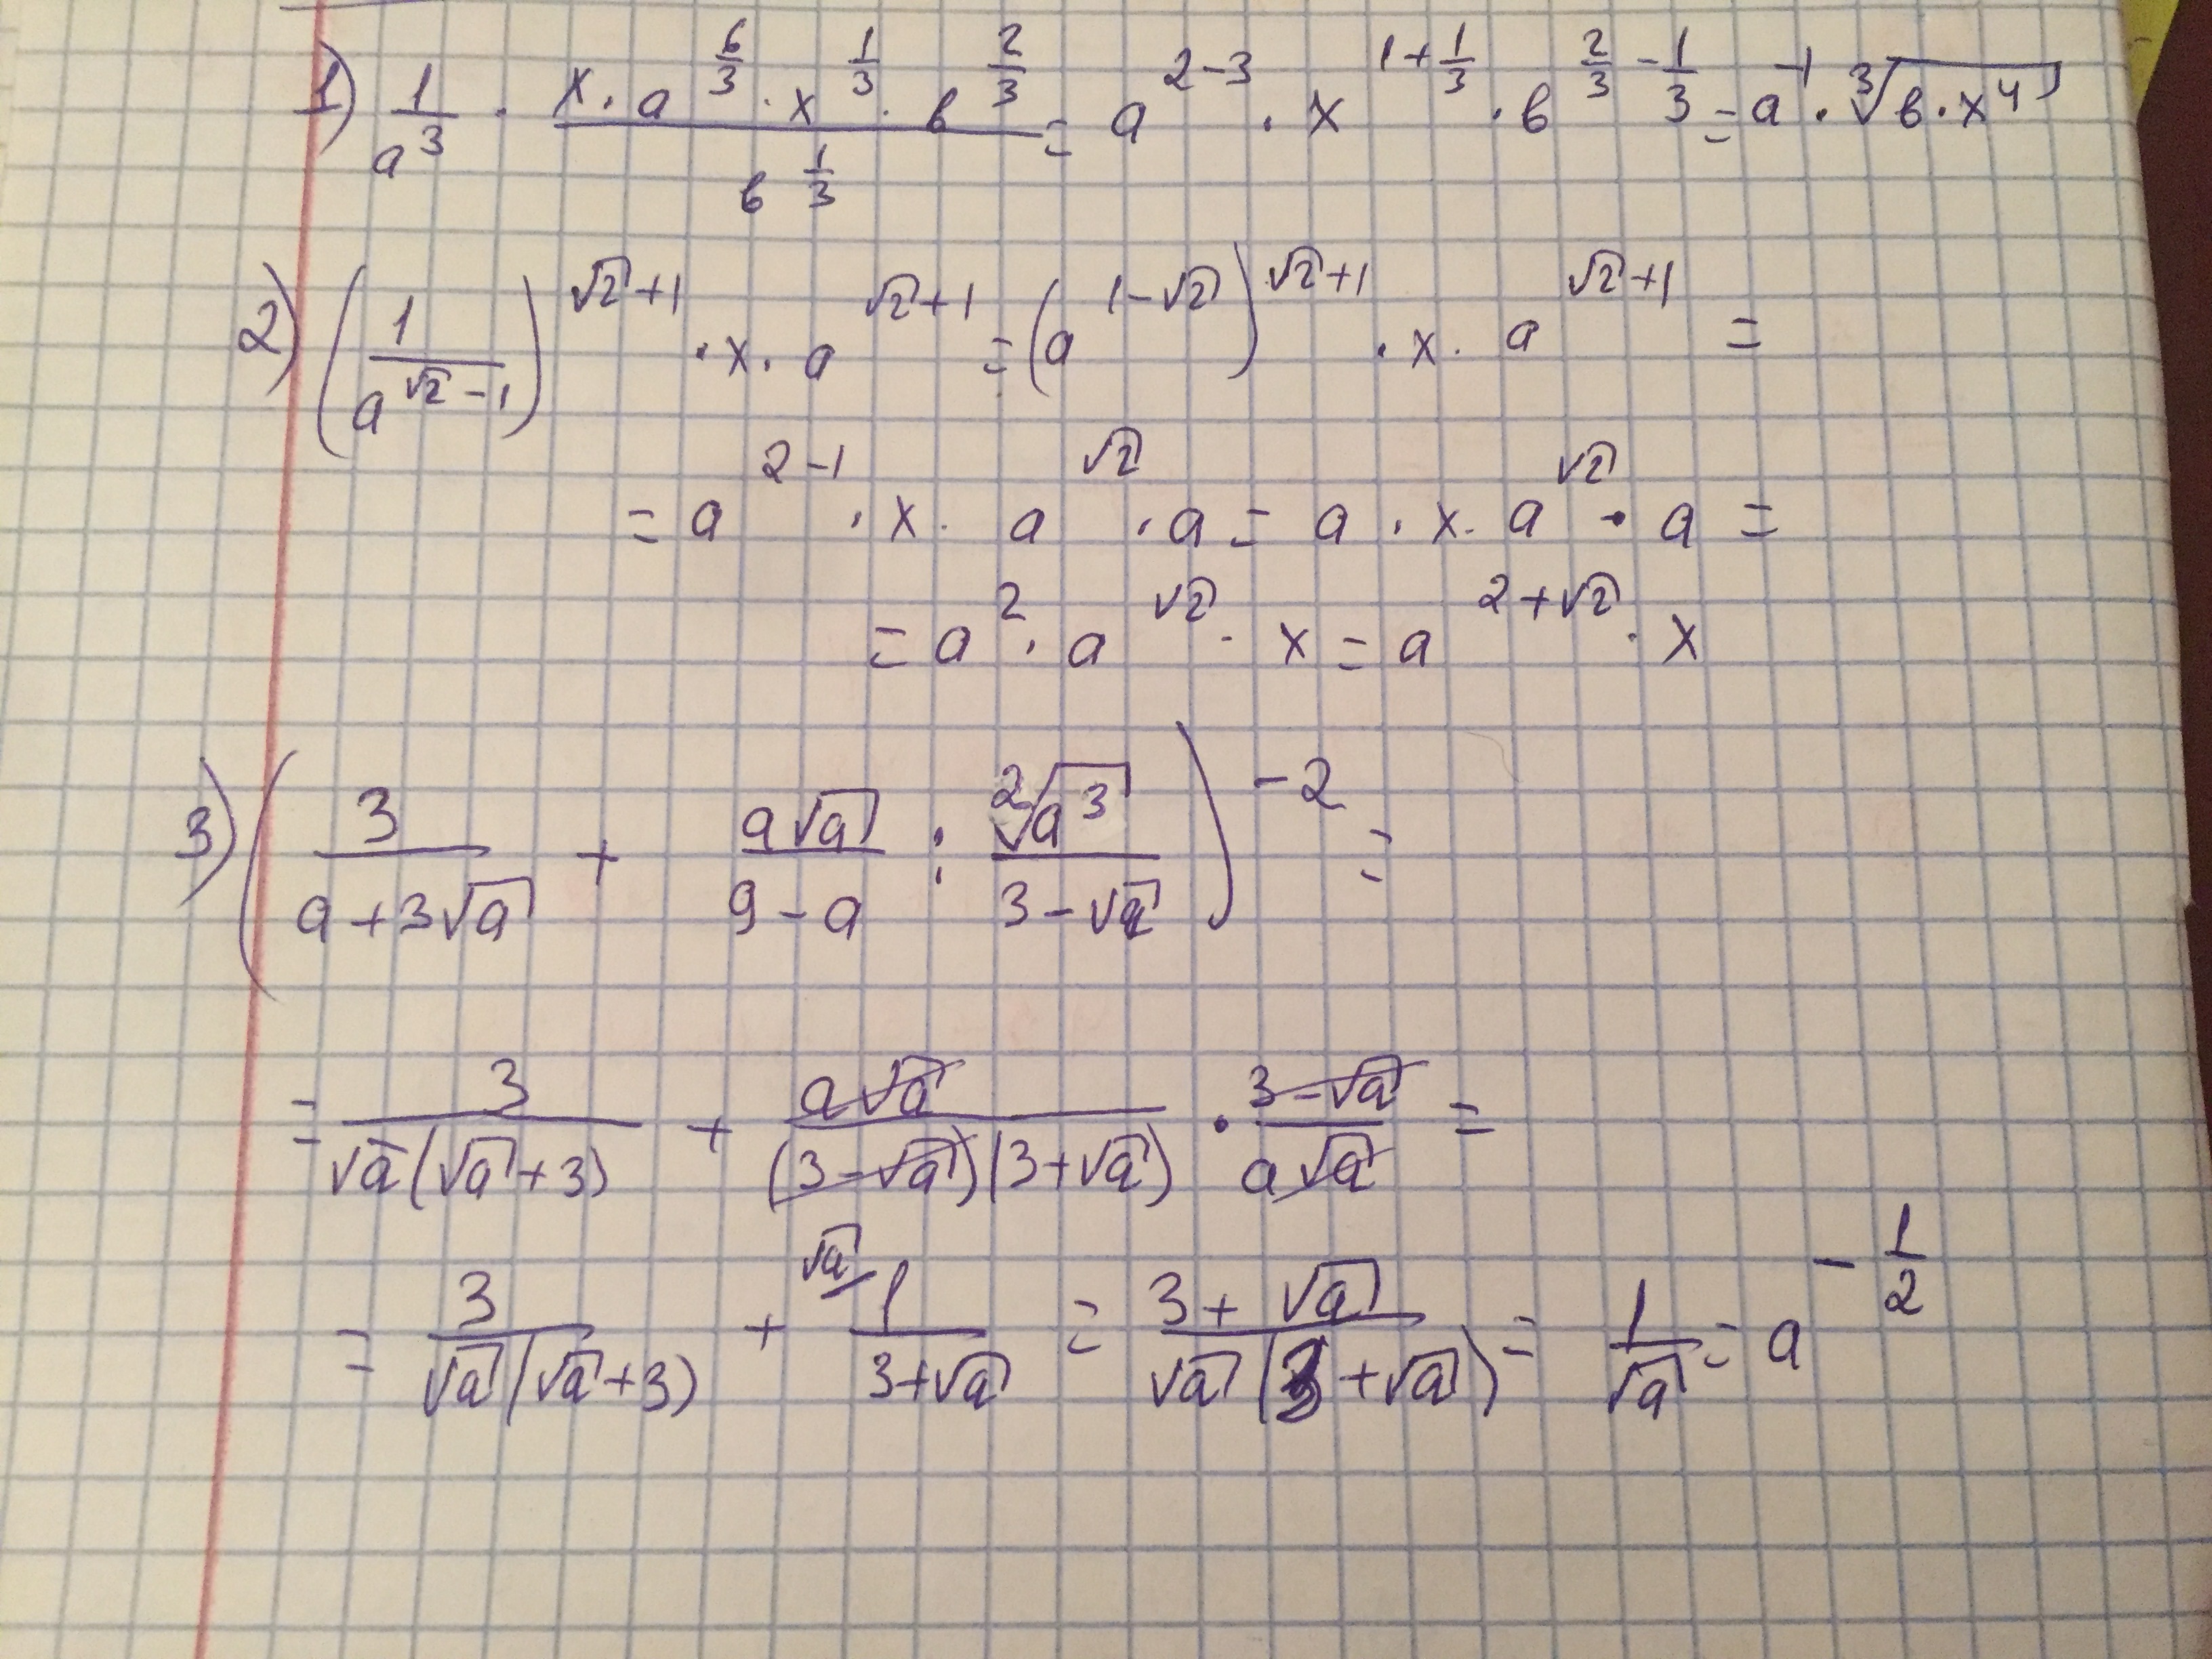 1) 1/a³ · (x · a^(6/3) · x^(1/3) · в^(2/3))/в^(1/3) = a^(2-3) · x^(1+1/3) · в^(2/3-1/3) = a^(-1) · ³√(в · x⁴)
2) (1/a^(√2-1))^(√2+1) · x · a^(√2+1) = (a^(1-√2))^(√2+1) · x · a^(√2+1) =
= a^(2-1) · x · a^(√2) · a = a · x · a^(√2) · a =
= a² · a^(√2) · x = a^(2+√2) · x
3) (3/(a+3√a) + a√a/(9-a) : ²√(a³)/(3-√a))^(-2) =
= 3/(√a(√a+3)) + a√a/((3-√a)(3+√a)) · (3-√a)/(a√a) =
= 3/(√a(√a+3)) + √a/ 1/(3+√a) = (3+√a)/(√a(3+√a)) = 1/√a = a^(-1/2)